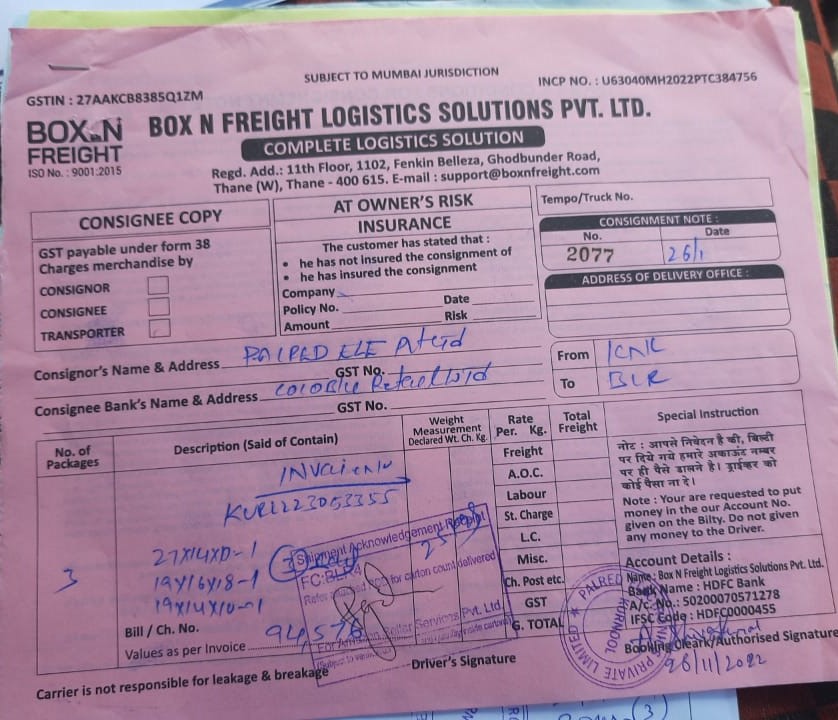 SUBJECT TO MUMBAI JURISDICTION
GSTIN : 27AAKCB8385Q1ZM
INCP NO. : U63040MH2022PTC384756
BOX N FREIGHT
ISO No. : 9001:2015
BOX N FREIGHT LOGISTICS SOLUTIONS PVT. LTD.
COMPLETE LOGISTICS SOLUTION
Regd. Add.: 11th Floor, 1102, Fenkin Belleza, Ghodbunder Road,
Thane (W), Thane - 400 615. E-mail : support@boxnfreight.com
CONSIGNEE COPY
GST payable under form 38
Charges merchandise by
CONSIGNOR
CONSIGNEE
TRANSPORTER
AT OWNER'S RISK
INSURANCE
The customer has stated that :
• he has not insured the consignment of
• he has insured the consignment
Company
Policy No. Date
Amount Risk
Tempo/Truck No.
CONSIGNMENT NOTE :
No. Date
2077 26/1
ADDRESS OF DELIVERY OFFICE :
Consignor's Name & Address PALRED ELE
GST No.
Consignee Bank's Name & Address Retail
GST No.
From KNL
To BLR
No. of Packages
Description (Said of Contain)
Weight Measurement Declared Wt. Ch. Kg.
Rate Per. Kg.
Total Freight
Special Instruction
3
27X14XD-1
19X16X18-1
19X14X10-1
Bill / Ch. No.
Values as per Invoice 94,576
Freight
A.O.C.
Labour
St. Charge
L.C.
Misc.
Ch. Post etc.
GST
G. TOTAL
नोट : आपसे निवेदन है की, बिल्टी
पर दिये गये हमारे अकाऊंट नम्बर
पर ही पैसे डालने है। ड्राईव्हर को
कोई पैसा ना दे।
Note : Your are requested to put
money in the our Account No.
given on the Bilty. Do not given
any money to the Driver.
Account Details :
Name : Box N Freight Logistics Solutions Pvt. Ltd.
Bank Name : HDFC Bank
A/c. No.: 50200070571278
IFSC Code : HDFC0000455
Shipment Acknowledgement Receipt
FC:BLR4
for carton count delivered
Seller Services Pvt. Ltd.
PALRED
KURNOOL
PRIVATE LIMITED
Booking Cleark/Authorised Signature
26/11/2022
Driver's Signature
Carrier is not responsible for leakage & breakage